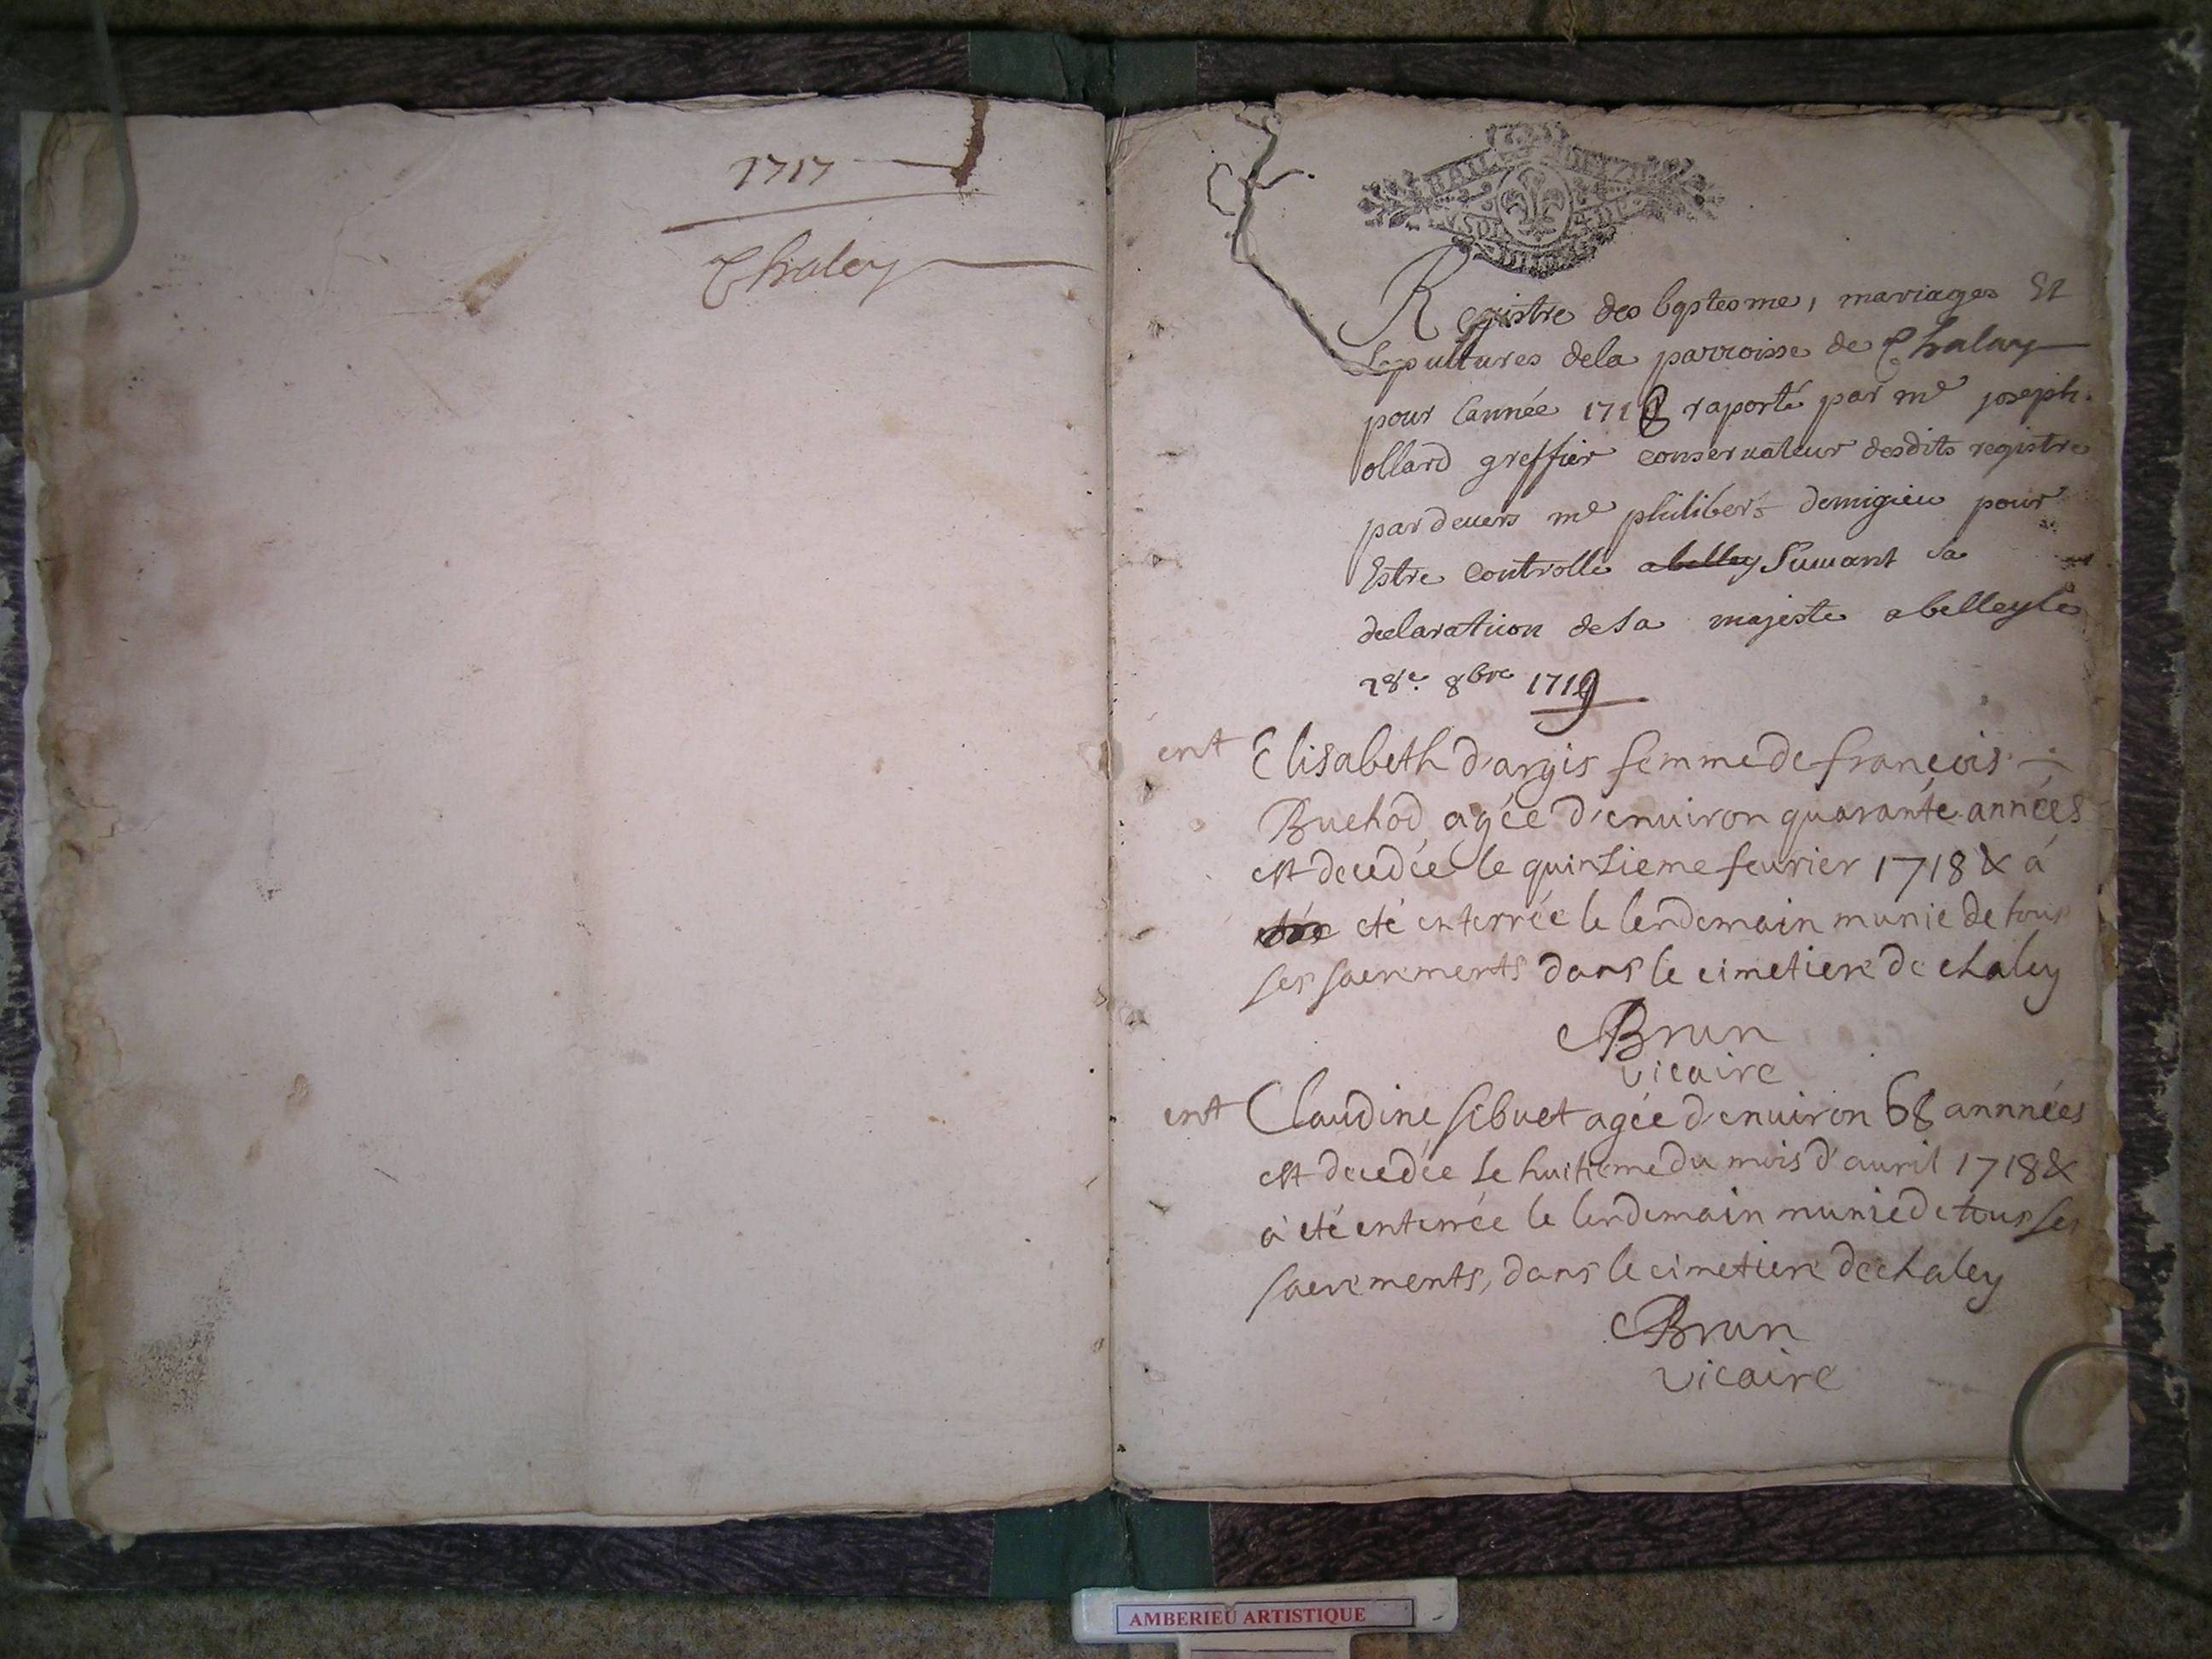 1717
Chaley
Registre des bastesme, mariages Et
Sepultures dela parroisse de Chaley
pour Lannée 1718 raporté par me joseph
ollard greffier conseruateur desdits registre
pardeuers me philibert demigieu pour
Estre Controllé abelley Suiuant la
declaratiion de Sa majeste abelley le
28e. 8bre 1719
ent Elisabeth d'argis femme de françois
Buchod agée d'enuiron quarante années
est decedée le quinsieme feurier 1718 & á
eté enterrée le lendemain munie de tous
ses sacrements dans le cimetiere de chaley
Brun
vicaire
ent Claudine sibuet agée d'enuiron 68 annnées
est decedée le huitieme du mois d'auril 1718 &
a eté enterrée le lendemain munie de tous ses
sacrements, dans le cimetiere de chaley
Brun
vicaire
AMBERIEU ARTISTIQUE